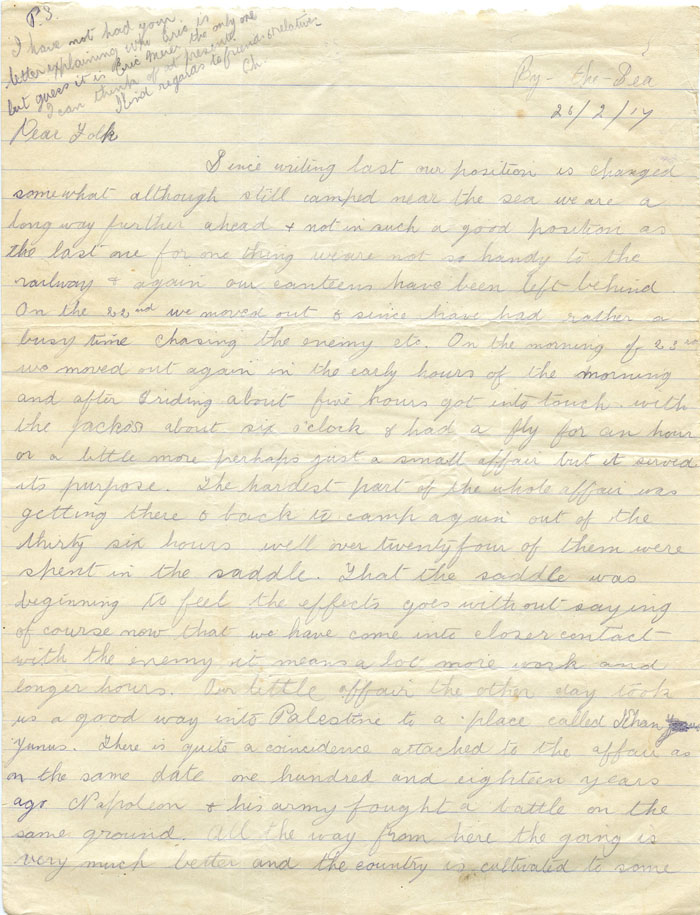 P.S.
I have not had your
letter explaining who Eric is
but guess it is Eric Meier the only one
I can think of at present.
Kind regards to friends & relatives
Ch.
By-the-Sea
26/2/17
Dear Folk
Since writing last our position is changed
somewhat although still camped near the sea we are a
long way further ahead & not in such a good position as
the last one for one thing we are not so handy to the
railway & again our canteens have been left behind.
On the 22nd we moved out & since have had rather a
busy time chasing the enemy etc. On the morning of 23rd
we moved out again in the early hours of the morning
and after riding about five hours got into touch with
the Jackos about six o'clock & had a fly for an hour
or a little more perhaps just a small affair but it served
its purpose. The hardest part of the whole affair was
getting there & back to camp again out of the
thirty six hours well over twentyfour of them were
spent in the saddle. That the saddle was
beginning to feel the effects goes without saying
of course now that we have come into closer contact
with the enemy it means a lot more work and
longer hours. Our little affair the other day took
us a good way into Palestine to a place called Khan
Yunus. There is quite a coincidence attached to the affair as
on the same date one hundred and eighteen years
ago Napoleon & his army fought a battle on the
same ground. All the way from here the going is
very much better and the country is cultivated to some